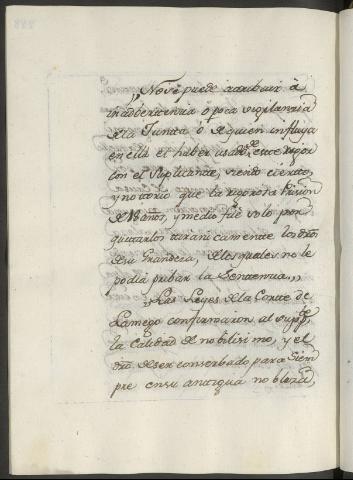 „No se puede atribuir à
inadbertencia ò poca vigilanzia
de la Junta ò de quien influya
en ella el haber usado este rigor
con el Suplicante, siendo cierto,
y notorio que la rigorosa Prision
de 18 años, y medio fué solo por
quitarlos tiranicamente los dros
de su Grandeza, de los quales no le
podia pribar la Sentencia„
„Las Leyes de la Corte de
Lamego confirmaron al supte
la calidad de nobilisimo, y el
dro de ser conserbado para siem
pre en su antigua nobleza,